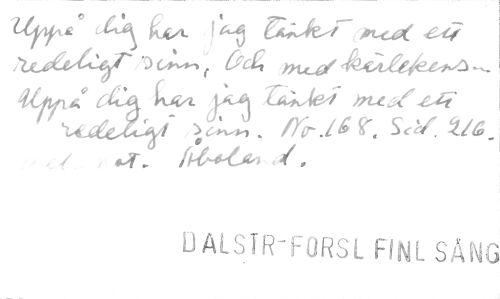 Uppå dig har jag tänkt med ett
redeligt sinn, Och med kärlekens
Uppå dig har jag tänkt med ett
redeligt sinn. No. 168. Sid. 216.
med not. Åboland.
DALSTR-FORSL FINL SÅNG